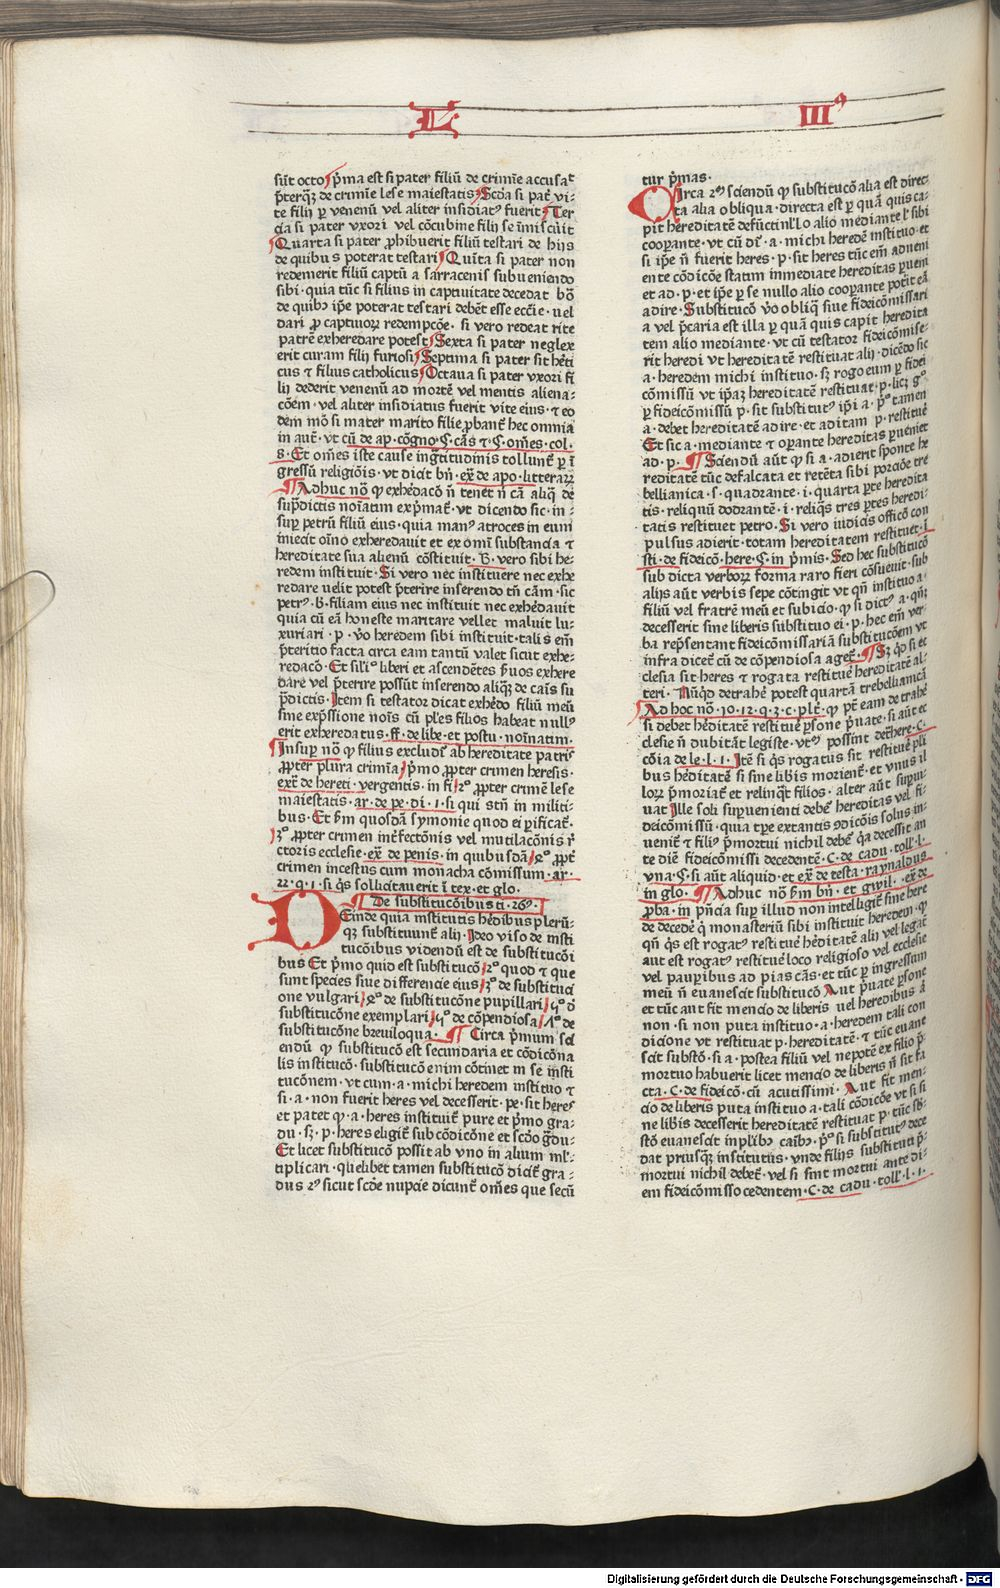 L IIIꝰ
sūt octo p̄ma est si pater filiū de crimīe accusat
p̄terqȝ de crimīe lese maiestatis Scd̄a si pat̄ vi⸗
te filij ꝑ venenū vel aliter insidiatꝰ fuerit Ter
cia si pater vxori vel cōcubine filij se īmiscuit
Quarta si pater ꝓhibuerit filiū testari de hijs
de quibus poterat testari Quīta si pater non
redemerit filiū captū a sarracenis subueniendo
sibi · quia tūc si filius in captiuitate decedat bō
de quibꝫ ip̄e poterat testari debēt esse ecctie · uel
dari ꝓ captiuoꝝ redempcōe · si vero redeat rite
patrē exheredare potest Sexta si pater neglex
erit curam filij furiosi Septima si pater sit hēti
cus ⁊ filius catholicus Octaua si pater vxori fi
lij dederit venenū ad mortē vel mentis aliena⸗
cōem · vel aliter insidiatus fuerit vite eius · ⁊ eo
dem mō si mater marito filie ꝓbant̄ hec omnia
in aut̄ · vt cū de ap · cōgno · C · cās ⁊ C · om̄es · col ·
8 · Et om̄es iste cause ingtitudinis tollunt̄ ꝑ ī
gressū religiōis · vt dicit bn̄ · ex̄ de apo · litteraꝝ
¶ Adhuc nō ꝙ exhēdacō n̄ tenet n̄ cā aliq̄ de
sup̄dictis noīatim exp̄mat̄ · vt dicendo sic · in⸗
suꝑ petrū filiū eius · quia manꝰ atroces in eum
iniecit oīno exheredauit et ex omī substancia ⁊
hereditate sua alienū cōstituit · B · vero sibi he⸗
redem instituit · Si vero nec instituere nec exhe
redare velit potest p̄terire inserendo tn̄ cām · sic
petrꝰ · B · filiam eius nec instituit nec exhēdauit
quia cū eā honeste maritare vellet maluit lu⸗
xuriari · p · v̄o heredem sibi instituit · talis em̄
p̄teritio facta circa eam tantū valet sicut exhe⸗
redacō · Et sil̄iꝰ liberi et ascendētes p̄uos exhere
dare vel p̄terire possūt inserendo aliqȝ de cāis su
p̄dictis · Item si testator dicat exhēdo filiū meū
sine exp̄ssione noīs cū ples filios habeat nullꝰ
erit exheredatus · ff · de libe · et postu · noīnatim ·
Insuꝑ nō ꝙ filius excludit̄ ab hereditate patris
ꝓpter plura crimīa p̄mo ꝓpter crimen heresis ·
ex̄ de hereti · vergentis · in fi 2° ꝓpter crimē lese
maiestatis · ar · de pe · di · 1 · si qui stn̄ in militi⸗
bus · Et s̄m quosdā symonie quod ei ꝑificat̄ ·
3° ꝓpter crimen int̄fectōnis vel mutilacōnis r̄
ctoris ecclesie · ex̄ de penis · in quibusdā 4° ꝓpt̄
crimen incestus cum monacha cōmissum · ar ·
22 · q · 1 · si q̄s sollicitauerit ī tex · et glo ·
¶ De substitucōibus ti · 26ꝰ ·
DEinde quia institutis hēdibus plerū⸗
qȝ substituunt̄ alij · Ideo viso de insti
tucōibus videndū est de substitucōi
bus Et p̄mo quid est substitucō 2° quod ⁊ que
sunt species siue differencie eius 3° de substituci
one vulgari 4° de substitucōne pupillari 5° ō
substitucōne exemplari 6° de cōpendiosa 7° de
substitucōne breuiloqua · ¶ Circa p̄mum sci
endū ꝙ substitucō est secundaria et cōdicōna
lis institucō · substitucō enim cōtinet in se insti
tucōnem · vt cum · a · michi heredem instituo ⁊
si · a · non fuerit heres vel decesserit · pe · sit heres
et patet ꝙ · a · heres instituit̄ pure et p̄mo gra⸗
du · sȝ · p · heres eligit̄ sub cōdicōne et scd̄o g̊du⸗
Et licet substitucō possit ab vno in alium ml̄⸗
tiplicari · quelibet tamen substitucō dicit̄ gra⸗
dus 2ꝰ sicut scd̄e nupcie dicunt̄ om̄es que secū
tur p̄mas ·
CIrca 2ꝰ sciendū ꝙ substitucō alia est direc⸗
ta alia obliqua · directa est ꝑ quā quis ca⸗
pit hereditatē defūcti nllo alio mediante l̄ sibi
cooꝑante · vt cū di ̄ · a · michi heredē instituo · et
si ip̄e n̄ fuerit heres · p · sit heres tūc em̄ adueni
ente cōdicōe statim inmediate hereditas ꝑueni
et ad · p · et ip̄e ꝑ se nullo alio cooꝑante pot̄it eā
adire · Substitucō v̄o obliq̄ siue fideicōmissari
a vel p̄caria est illa ꝑ quā quis capit heredita
tem alio mediante · vt cū testator fideicōmise⸗
rit heredi vt hereditatē restituat alij · dicēdo sic
a · heredem michi instituo · sȝ rogo eum ꝑ fidei
cōmissū vt ip̄aȝ hereditatē restituat · p · licȝ gͦ
ꝑ fideicōmissū p · sit substitutꝰ ip̄i a · pͦ tamen
a · debet hereditatē adire · et aditam p · restitue̊
Et sic a · mediante ⁊ oꝑante hereditas ꝑueniet
ad · p · ¶ Sciendū aūt ꝙ si a · adierit sponte he
reditatē tūc defalcata et retēta sibi porcōe tre
bellianica · s · quadrante · i · quarta ꝑte heredita
tis · reliquū dodrantē · i · reliq̄s tres ꝑtes heredi⸗
tatis restituet petro · Si vero iudicis officō con
pulsus adierit · totam hereditatem restituet · ī
sti · de fideicō · here · C · in p̄mis · Sed hec substitucō
sub dicta verboꝝ forma raro fieri cōsueuit · sub
alijs aūt verbis sepe cōtingit vt qn̄ instituo a ·
filiū vel fratrē meū et subicio · ꝙ si dictꝰ a · qn̄ȝ
decesserit sine liberis substituo ei · p · hec em̄ ver⸗
ba rep̄sentant fideicōmissariā substitucōem vt
infra dicet̄ cū de cōpendiosa aget̄ · ¶ Sȝ q̇d si ec
clesia sit heres ⁊ rogata restitue̊ hereditatē al⸗
teri · Nūq̇d detrahe̊ potest quartā trebellianicā
Ad hoc nō · 10 · 12 · q · 2 · c · plt̄ · ꝙ pt̄ eam de trahe̊
si debet hēditatē restitue̊ ꝑsone p̄uate · si aūt ec
clesie n̄ dubitāt legiste · vtꝝ possint det̄here · C ·
cōia de le · l · 1 · Itē si q̄s rogatus sit restitue̊ pli
bus hēditatē si sine libis morient̄ · et vnus il
loꝝ p̄moriat̄ et relinq̄t filios · alter aūt suꝑui⸗
uat Ille soli suꝑuenienti debet̄ hereditas vel fi⸗
deicōmissū · quia tꝑe extantis ꝯdicōis solus in⸗
uenit̄ ⁊ filiꝰ p̄mortui nichil debet̄ q̇a decessit an
te diē fideicōmissi decedentē · C · de cadu · toll · l ·
vna · C · si aūt aliquid · et ex̄ de testa · raynaldus
in glo · ¶ Adhuc nō s̄m bn̄ · et gwil · ex̄ de
ꝓba · in p̄ncia suꝑ illud non intelligit̄ sine here
de decede̊ q̇ monasteriū sibi instituit heredem · ꝙ
qn̄ q̄s est rogatꝰ restitue̊ hēditatē alij vel legat
aut est rogatꝰ restitue̊ loco religioso vel ecclesie
vel pauꝑibus ad pias cās · et tūc ꝑ ingressum
meū n̄ euanescit substitucō Aut p̄uate ꝑsone
et tūc aut fit mencio de liberis uel heredibus ā
non · si non puta instituo · a · heredem tali con
dicione vt restituat p · hereditatē · ⁊ tūc euane
scit substō · si a · postea filiū vel nepotē ex filio p̄
mortuo habuerit licet mencio de liberis n̄ sit fa
cta · C · de fideicō · cū acutissimi · Aut fit men⸗
cio de liberis puta instituo a · tali cōdicōe vt si si
ne libis decesserit hereditatē restituat p · tūc sb⸗
stō euanescit in plibꝫ caibꝫ · pͦ si substitutꝰ dece
dat priusqȝ institutus · vnde filijs substituti p̄⸗
mortui nichil debet̄ · vel si sint mortui ante di⸗
em fideicōmisso cedentem · C · de cadu · toll · l · 1 ·
Digitalisierung gefördert durch die Deutsche Forschungsgemeinschaft - DFG